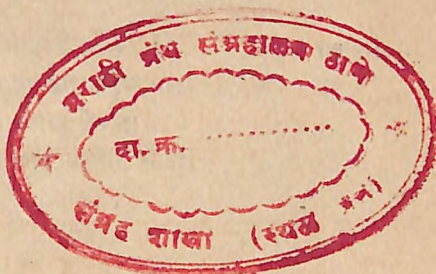 मराठी ग्रंथ संग्रहालय ठाणे
दा. क्र. ................
संग्रह शाखा (स्थळ